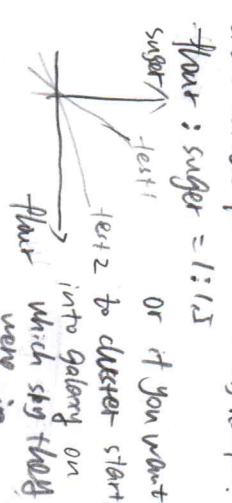 flour : suger = 1:1.5
suger
test 1
test 2
flour
or if you want
to cluster start
into galary on
which sky they
were in